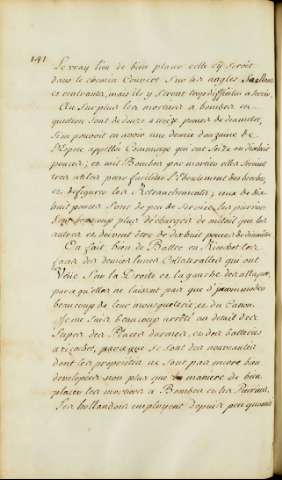 141
Le vray lieu de bien placer celle cy seroit
dans le chemin Couvert sur les angles Saillans
et rentrants, mais ils y seront trop difficiles a servir.
Au surplus les mortiers a bombes en
question sont de douze a treize pouces de diametre,
si on pouvoit en avoir une demie douzaine de
appellés Comminges qui ont seize ou dixhuit
pouces; et mil Bombes par mortier elles seroient
tres utiles pour faciliter l'Eboulement des breches
et defigurer les Retranchements; ceux de dix
huit pouces sont de peu de service, les pierriers
beaucoup plus de charges de métail que les
autres et doivent être de dix huit pouces de diametre.
On fait bien de Battre en Ricochet les
faces des demies lunes Collateralles qui ont
Veüe Sur la Droite et la gauche des attaques,
parce qu'elles ne laissent pas que d'incommoder
beaucoup de leur mousqueterie, et du Canon.
Je me suis beaucoup arrêté au detail des
Sapes des Places d'armes, et des batteries
a ricochet, parceque ce sont des nouveautés
dont les proprietés ne sont pas encore bien
developées non plus que la maniere de bien
placer les mortiers a Bombes et les Pierriers,
Les hollandois employent depuis peu quantité